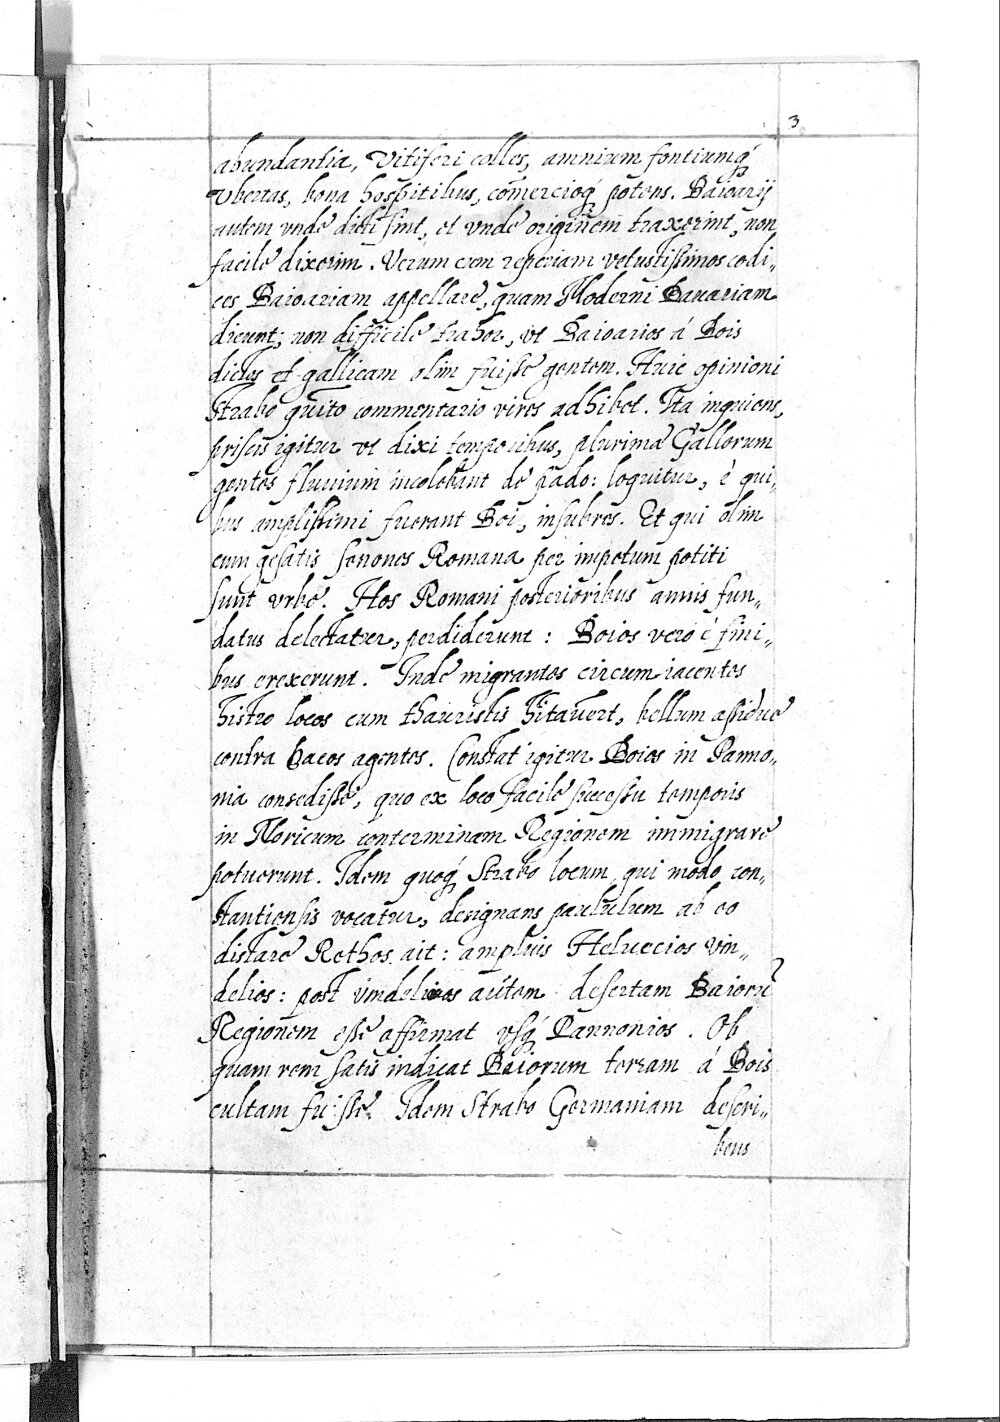 3
abundantia, Vitiferi colles, amnium fontiumq́
Vbertas, bona hospitibus, com̃ercioq́ potens. Baioarij
autem vnde dicti sint, et vnde originem traxerint, non
facile dixerim. Verum cum reperiam vetustissimos codi„
ces Baioariam appellare, quam Moderni Bauariam
dicunt; non difficile trahor, vt Baioarios á Bois
dictos et gallicam olim fuisse gentem. Huic opinioni
Strabo quito commentario vires adhibet. Ita inquiens,
priscis igitur vt dixi temporibus, plurima Gallorum
gentes fluuium incolebant de pado: loquitur, è qui„
bus amplissimi fuerant Boi, insubres. Et qui olim
cum gesatis senones Romana per impetum potiti
sunt vrbe. Hos Romani posterioribus annis fun„
datus delectatur, perdiderunt: Boios vero é fini„
bus erexerunt. Inde migrantes circum iacentes
histro locos cum thauristis hitauert, bellum assidue
contra Dacos agentes. Constat igitur Boios in Panno„
nia consedisse, quo ex loco facile successu temporis
in Noricum conterminam Regionem immigrare
potuerunt. Idem quoq́ Strabo locum, qui modo con„
stantiensis vocatur, designans paululum ab eo
distare Rethos ait: amplius Heluecios vin„
delios: post vindelicos aútem desertam Baiorũ
Regionem esse affirmat vsq́ Pannonios. Ob
quam rem satis indicat Baiorum terram á Bois
cultam fuisse. Idem Strabo Germaniam descri„
bens